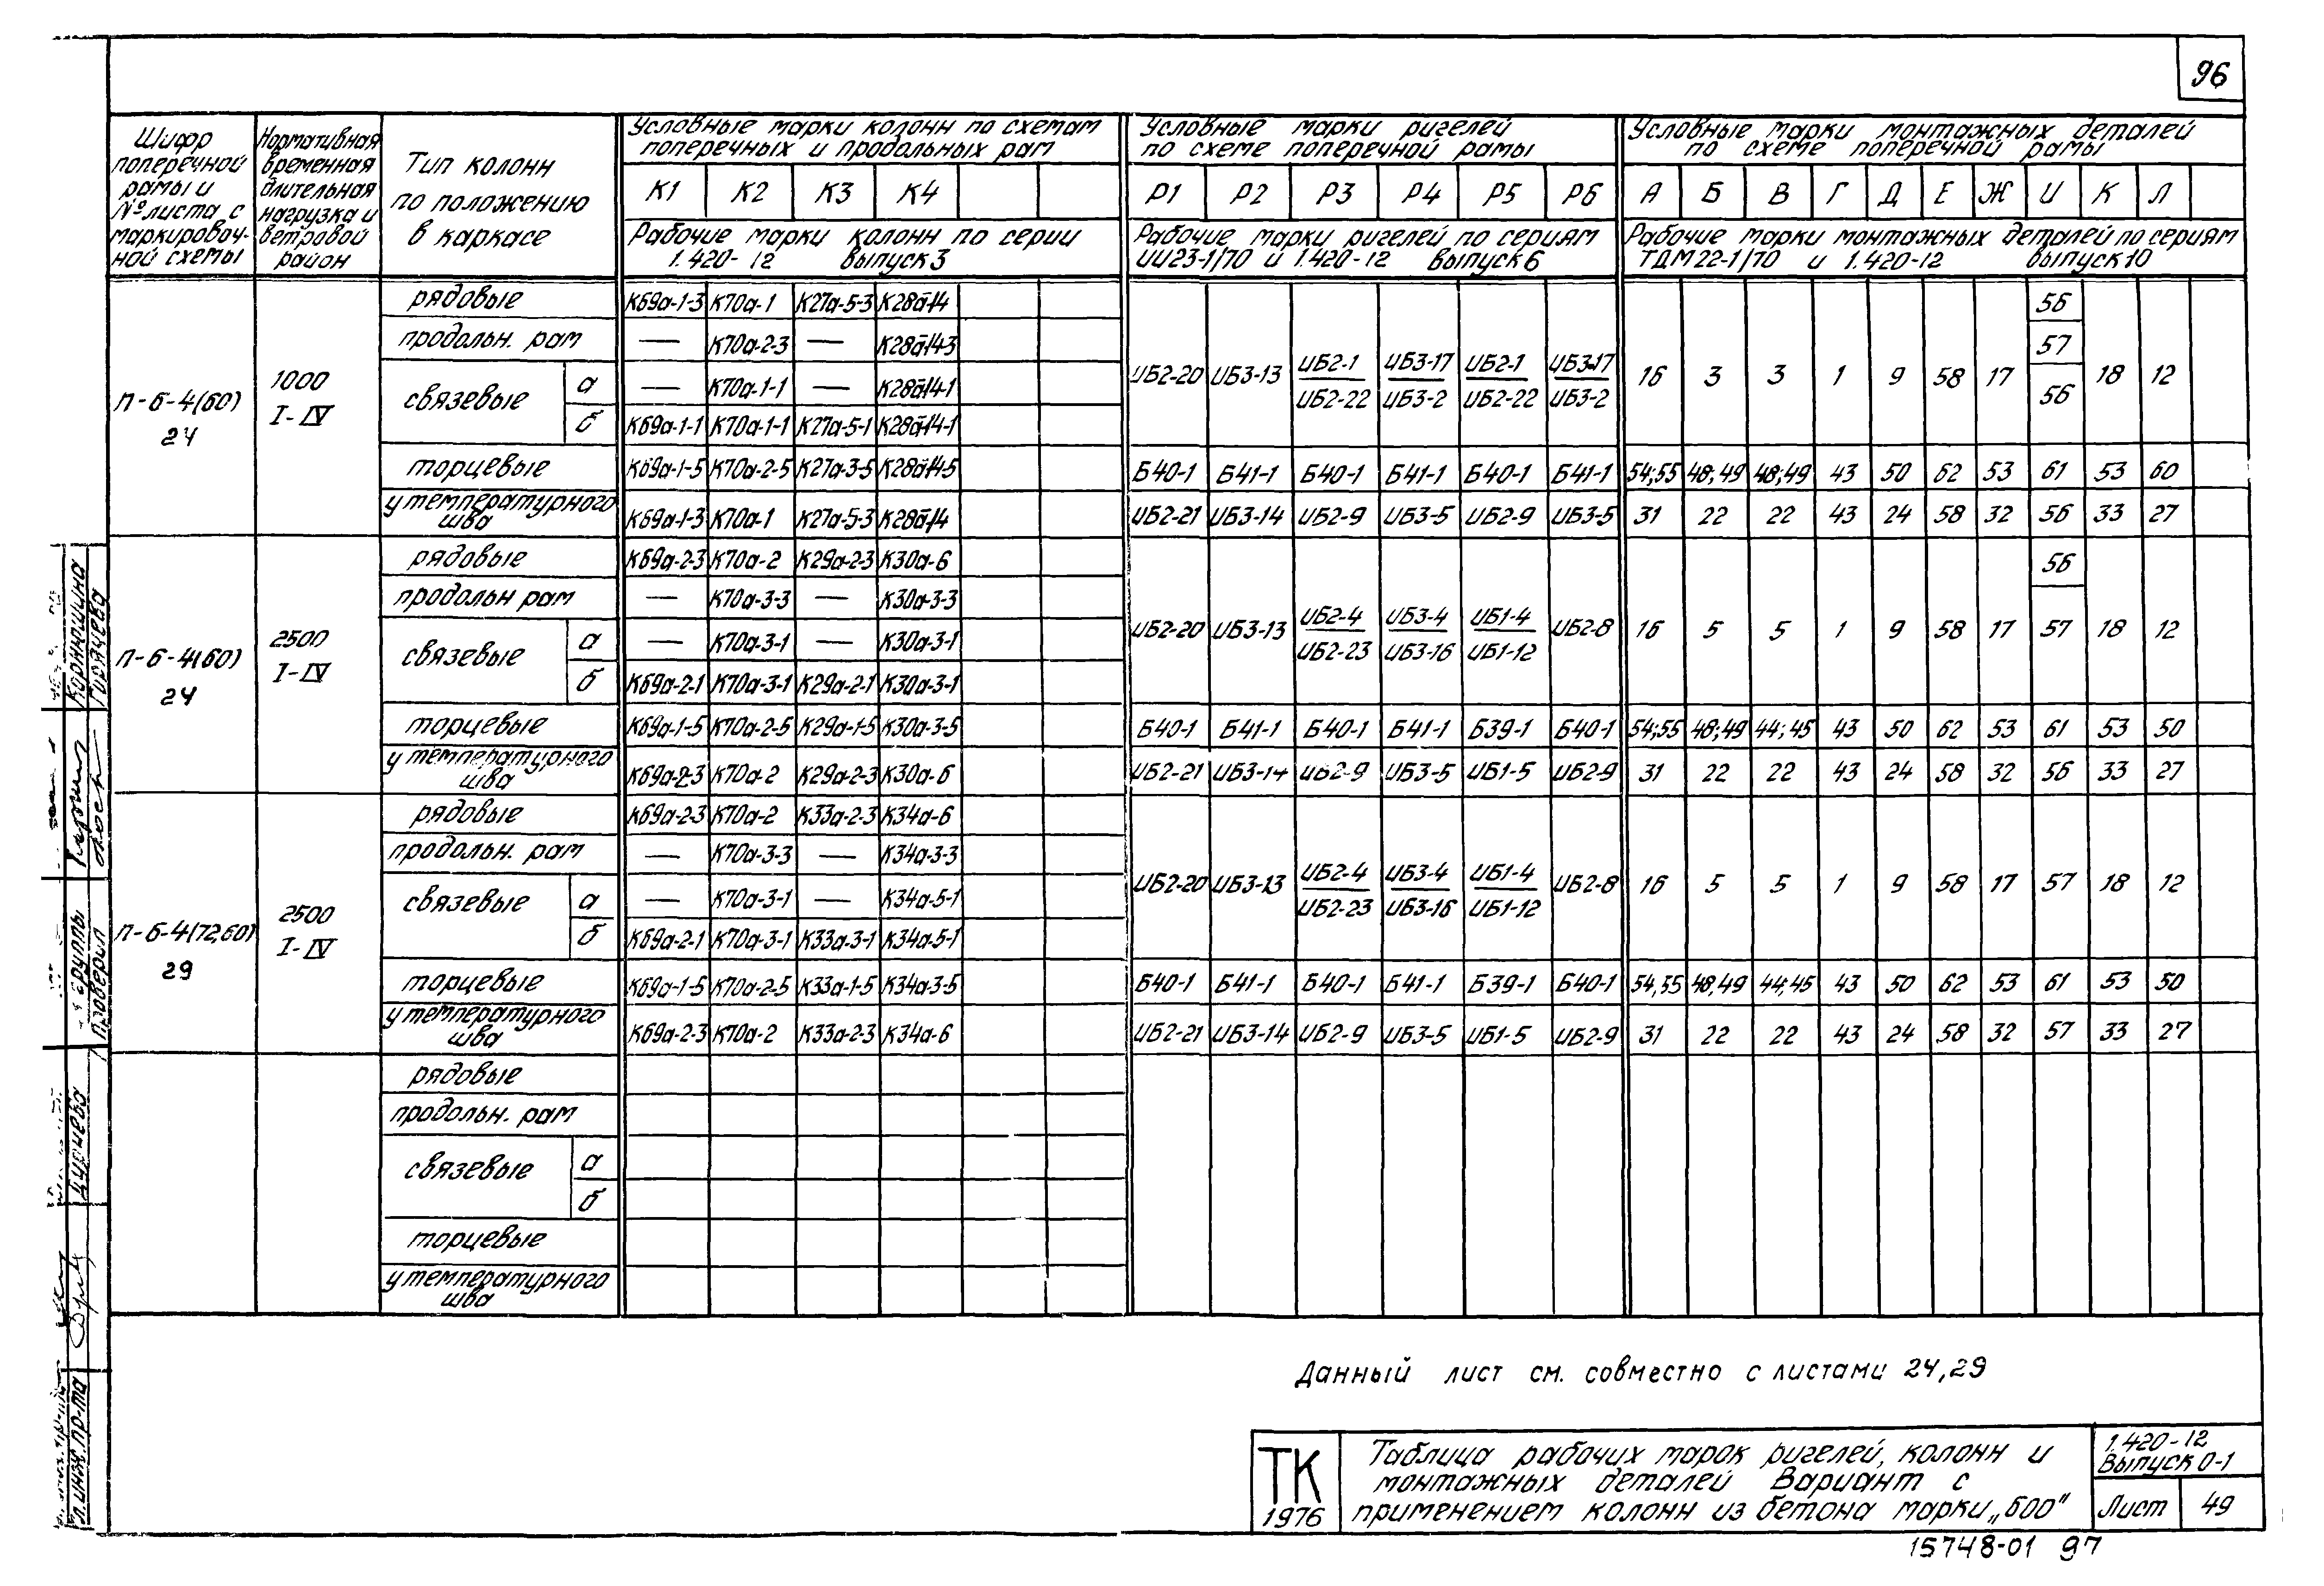 96
Шифр поперечной рамы и № листа с маркировоч- ной схемы
Нормативная временная длительная нагрузка и ветровой район
Тип колонн по положению в каркасе
Условные марки колонн по схемам поперечных и продольных рам
Условные марки ригелей по схеме поперечной рамы
Условные марки монтажных деталей по схеме поперечной рамы
К1 К2 К3 К4 Р1 Р2 Р3 Р4 Р5 Р6 А Б В Г Д Е Ж И К Л
Рабочие марки колонн по серии 1.420-12 выпуск 3
Рабочие марки ригелей по сериям ИИ23-1/70 и 1.420-12 выпуск 6
Рабочие марки монтажных деталей по сериям ТДМ22-1/70 и 1.420-12 выпуск 10
П-6-4(60)
24
1000
I-IV
рядовые К69а-1-3 К70а-1 К27а-5-3 К28а-14
продольн. рам — К70а-2-3 — К28а-14-3
связевые а — К70а-1-1 — К28а-14-1
б К69а-1-1 К70а-1-1 К27а-5-1 К28а-14-1
ИБ2-20 ИБ3-13 ИБ2-1 ИБ3-17 ИБ2-1 ИБ3-17
ИБ2-22 ИБ3-2 ИБ2-22 ИБ3-2
16 3 3 1 9 58 17 56 57 56 18 12
торцевые К69а-1-5 К70а-2-5 К27а-3-5 К28а-14-5 Б40-1 Б41-1 Б40-1 Б41-1 Б40-1 Б41-1 54;55 48;49 48;49 43 50 62 53 61 53 60
у температурного шва К69а-1-3 К70а-1 К27а-5-3 К28а-14 ИБ2-21 ИБ3-14 ИБ2-9 ИБ3-5 ИБ2-9 ИБ3-5 31 22 22 43 24 58 32 56 33 27
П-6-4(60)
24
2500
I-IV
рядовые К69а-2-3 К70а-2 К29а-2-3 К30а-6
продольн рам — К70а-3-3 — К30а-3-3
связевые а — К70а-3-1 — К30а-3-1
б К69а-2-1 К70а-3-1 К29а-2-1 К30а-3-1
ИБ2-20 ИБ3-13 ИБ2-4 ИБ3-4 ИБ1-4 ИБ2-8
ИБ2-23 ИБ3-16 ИБ1-12
16 5 5 1 9 58 17 56 57 18 12
торцевые К69а-1-5 К70а-2-5 К29а-1-5 К30а-3-5 Б40-1 Б41-1 Б40-1 Б41-1 Б39-1 Б40-1 54;55 48;49 44;45 43 50 62 53 61 53 50
у температурного шва К69а-2-3 К70а-2 К29а-2-3 К30а-6 ИБ2-21 ИБ3-14 ИБ2-9 ИБ3-5 ИБ1-5 ИБ2-9 31 22 22 43 24 58 32 56 33 27
П-6-4(72,60)
29
2500
I-IV
рядовые К69а-2-3 К70а-2 К33а-2-3 К34а-6
продольн. рам — К70а-3-3 — К34а-3-3
связевые а — К70а-3-1 — К34а-5-1
б К69а-2-1 К70а-3-1 К33а-3-1 К34а-5-1
ИБ2-20 ИБ3-13 ИБ2-4 ИБ3-4 ИБ1-4 ИБ2-8
ИБ2-23 ИБ3-16 ИБ1-12
16 5 5 1 9 58 17 57 18 12
торцевые К69а-1-5 К70а-2-5 К33а-1-5 К34а-3-5 Б40-1 Б41-1 Б40-1 Б41-1 Б39-1 Б40-1 54,55 48,49 44,45 43 50 62 53 61 53 50
у температурного шва К69а-2-3 К70а-2 К33а-2-3 К34а-6 ИБ2-21 ИБ3-14 ИБ2-9 ИБ3-5 ИБ1-5 ИБ2-9 31 22 22 43 24 58 32 57 33 27
рядовые
продольн. рам
связевые а
б
торцевые
у температурного шва
Данный лист см. совместно с листами 24,29
ТК
1976
Таблица рабочих марок ригелей, колонн и
монтажных деталей Вариант с
применением колонн из бетона марки „600"
1.420-12
Выпуск 0-1
Лист 49
15748-01 97
Горячева
проверил